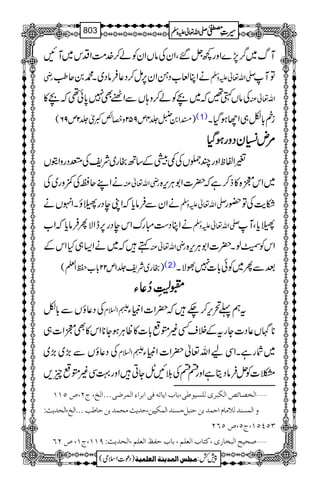 سیرتِ مصطفیٰ صلی اللہ تعالیٰ علیہ وسلم 803
آگ میں گر پڑے اور کچھ جل گئے، ان کی ماں ان کو لے کر خدمت اقدس میں آئیں
تو آپ صلی اللہ تعالیٰ علیہ وسلم نے اپنا لعاب دہن ان پر مل کر دعا فرما دی۔ محمد بن حاطب رضی
اللہ تعالیٰ عنہ کی ماں کہتی تھیں کہ میں بچے کو لے کر وہاں سے اٹھنے بھی نہیں پائی تھی کہ بچے کا
زخم بالکل ہی اچھا ہو گیا۔(1) (مسند ابن حنبل جلد۴ ص۲۵۹ و خصائص کبریٰ جلد۲ ص۶۹)
مرض نسیان دور ہو گیا
تغیر الفاظ اور چند جملوں کی کمی بیشی کے ساتھ بخاری شریف کی متعدد روایتوں
میں اس معجزہ کا ذکر ہے کہ حضرت ابو ہریرہ رضی اللہ تعالیٰ عنہ نے اپنے حافظہ کی کمزوری کی
شکایت کی تو حضور صلی اللہ تعالیٰ علیہ وسلم نے ان سے فرمایا کہ اپنی چادر پھیلاؤ۔ انہوں نے
پھیلایا، آپ صلی اللہ تعالیٰ علیہ وسلم نے اپنا دست مبارک اس چادر پر ڈالا پھر فرمایا کہ اب
اس کو سمیٹ لو۔ حضرت ابو ہریرہ رضی اللہ تعالیٰ عنہ کہتے ہیں کہ میں نے ایسا ہی کیا اس کے
بعد سے پھر میں کوئی بات نہیں بھولا۔(2) (بخاری شریف جلد۱ ص۲۲ باب حفظ العلم)
مقبولیتِ دُعاء
یہ ہم پہلے تحریر کر چکے ہیں کہ حضرات انبیاء علیہم السلام کی دعاؤں سے بالکل
ناگہاں عادت جاریہ کے خلاف کسی غیر متوقع بات کا ظاہر ہو جانا اس کا بھی معجزات ہی
میں شمار ہے۔ اسی لیے اللہ تعالیٰ حضرات انبیاء علیہم السلام کی دعاؤں سے بڑی بڑی
مشکلات کو حل فرما دیتا ہے اور قسم قسم کی بلائیں ٹل جاتی ہیں اور بہت سی غیر متوقع چیزیں
الخصائص الکبری للسیوطی، باب ایاتہ فی ابراء المرضی...الخ، ج۲، ص ۱۱۵
و المسند للامام احمد بن حنبل، مسند المکیین، حدیث محمد بن حاطب...الخ، الحدیث:
۱۵۴۵۳، ج۵، ص ۲۶۵
صحیح البخاری، کتاب العلم، باب حفظ العلم، الحدیث: ۱۱۹، ج۱، ص ۶۲
پیش کش: مجلس المدینة العلمیة (دعوت اسلامی)